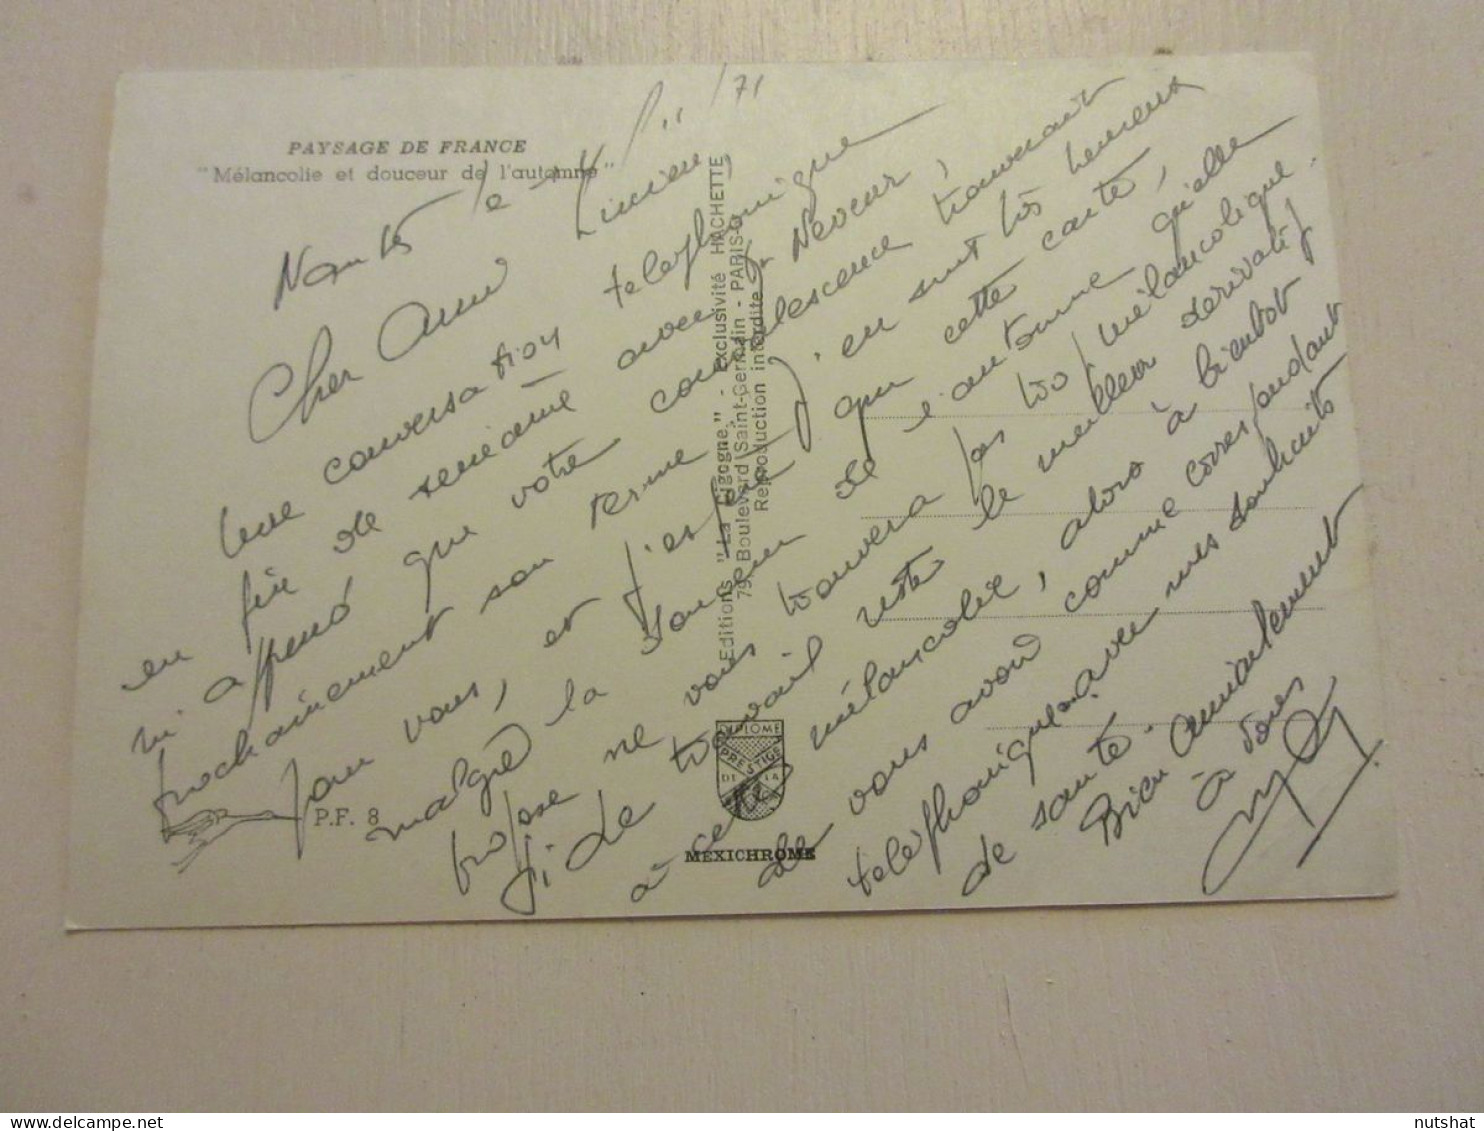 PAYSAGE DE FRANCE
"Mélancolie et douceur de l'automne"
Nantes le 11/71
Cher Ami Lucien,
Une conversation téléphonique
en fin de semaine avec Neveur,
m'apprend que votre convalescence trouverait
prochainement son terme, j'en suis très heureux
pour vous, et j'espère que cette carte,
malgré la douceur de l'automne qu'elle
propose ne vous trouvera pas trop mélancolique.
Si le travail reste le meilleur dérivatif
à cette mélancolie, alors à bientôt
de vous avoir comme correspondant
téléphonique, avec mes souhaits
de santé.
Bien Amicalement
à vous
Editions "La Cigogne" - exclusivité HACHETTE
79, Boulevard Saint-Germain - PARIS-6
Reproduction interdite
P.F. 8
DIPLOME
PRESTIGE
DE LA
MEXICHROME
nutshat